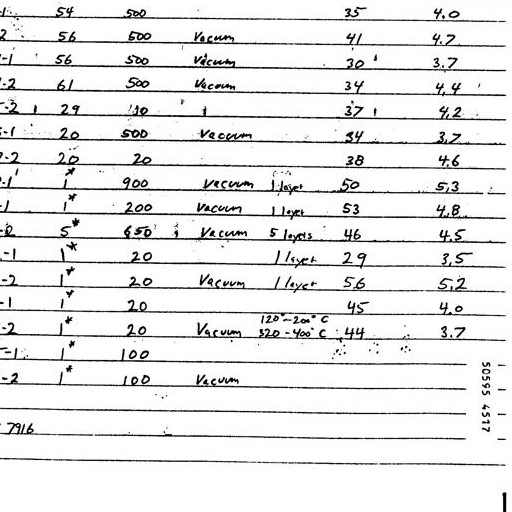 -1 54 500 35 4.0
2 56 500 Vacuum 41 4.7
-1 56 500 Vacuum 30 3.7
-2 61 500 Vacuum 34 4.4
-2 29 10 37 4.2
-1 20 500 Vacuum 34 3.7
-2 20 20 38 4.6
-1 1* 900 Vacuum 1 layer 50 5.3
-1 1* 200 Vacuum 1 layer 53 4.8
-2 5* 650 Vacuum 5 layers 46 4.5
-1 1* 20 1 layer 29 3.5
-2 1* 20 Vacuum 1 layer 56 5.2
-1 1* 20 45 4.0
120°-200°C
-2 1* 20 Vacuum 320-400°C 44 3.7
-1 1* 100
-2 1* 100 Vacuum
7916
50595 4517